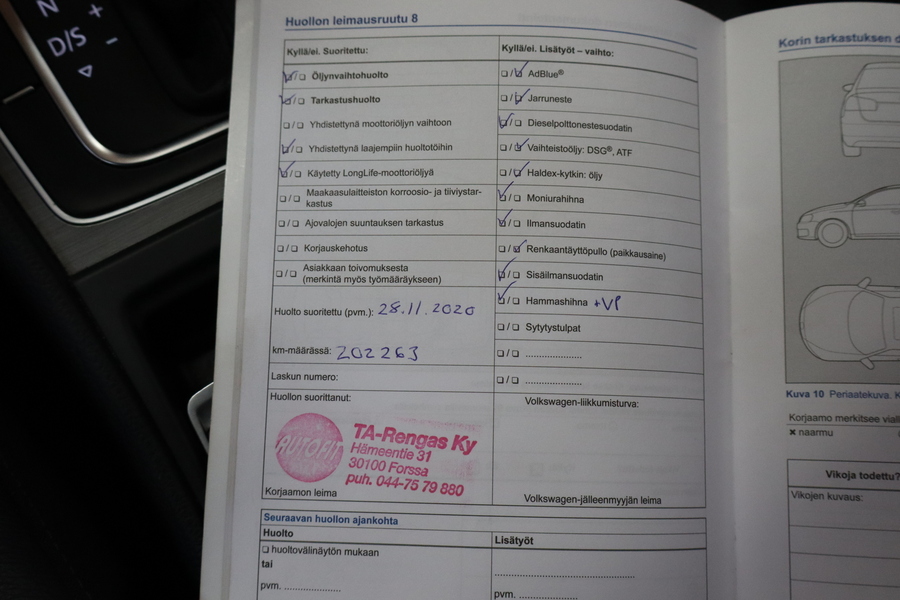 N +
D/S –
Huollon leimausruutu 8
Kyllä/ei. Suoritettu:
Öljynvaihtohuolto
Tarkastushuolto
Yhdistettynä moottoriöljyn vaihtoon
Yhdistettynä laajempiin huoltotöihin
Käytetty LongLife-moottoriöljyä
Maakaasulaitteiston korroosio- ja tiiviystar-
kastus
Ajovalojen suuntauksen tarkastus
Korjauskehotus
Asiakkaan toivomuksesta
(merkintä myös työmääräykseen)
Huolto suoritettu (pvm.): 28.11.2020
km-määrässä: 202263
Laskun numero:
Huollon suorittanut:
AUTOFIT
TA-Rengas Ky
Hämeentie 31
30100 Forssa
puh. 044-75 79 880
Korjaamon leima
Kyllä/ei. Lisätyöt – vaihto:
AdBlue®
Jarruneste
Dieselpolttonestesuodatin
Vaihteistoöljy: DSG®, ATF
Haldex-kytkin: öljy
Moniurahihna
Ilmansuodatin
Renkaantäyttöpullo (paikkausaine)
Sisäilmansuodatin
Hammashihna +VP
Sytytystulpat
Volkswagen-liikkumisturva:
Volkswagen-jälleenmyyjän leima
Seuraavan huollon ajankohta
Huolto
huoltovälinäytön mukaan
tai
pvm.
Lisätyöt
pvm.
Korin tarkastuksen
Kuva 10 Periaatekuva.
Korjaamo merkitsee
× naarmu
Vikoja todettu?
Vikojen kuvaus: